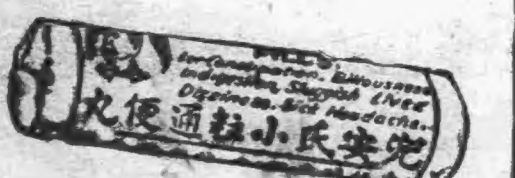 For Constipation, Biliousness
Indigestion, Sluggish Liver
Dizziness, Sick Headache.
兜安氏小粒通便丸